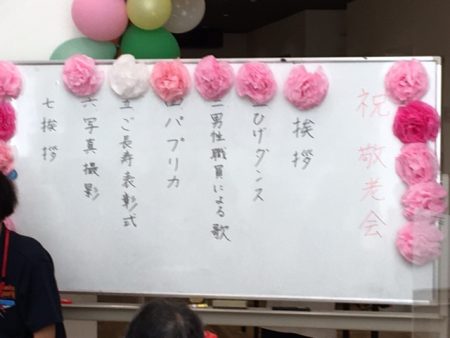 祝敬老会
挨拶
二ひげダンス
三男性職員による歌
四パプリカ
五ご長寿表彰式
六写真撮影
七挨拶